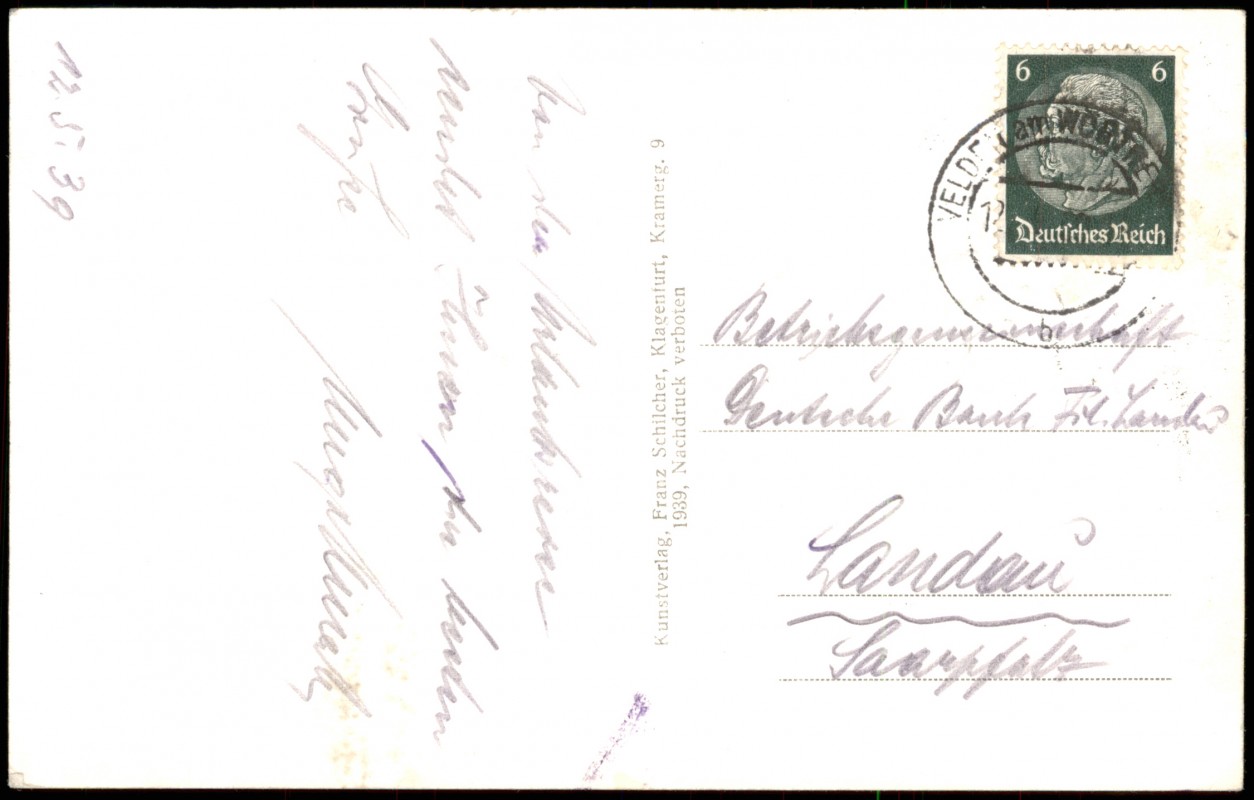 12.5.39
Von der
sendet Ihnen die besten
Grüße
Kunstverlag, Franz Schilcher, Klagenfurt, Kramerg. 9
1939, Nachdruck verboten
6 6
Deutsches Reich
VELDEN am WÖRTHERSEE
12
b
Betriebsgemeinschaft
Deutsche Bank Fil. Landau
Landau
Saarpfalz